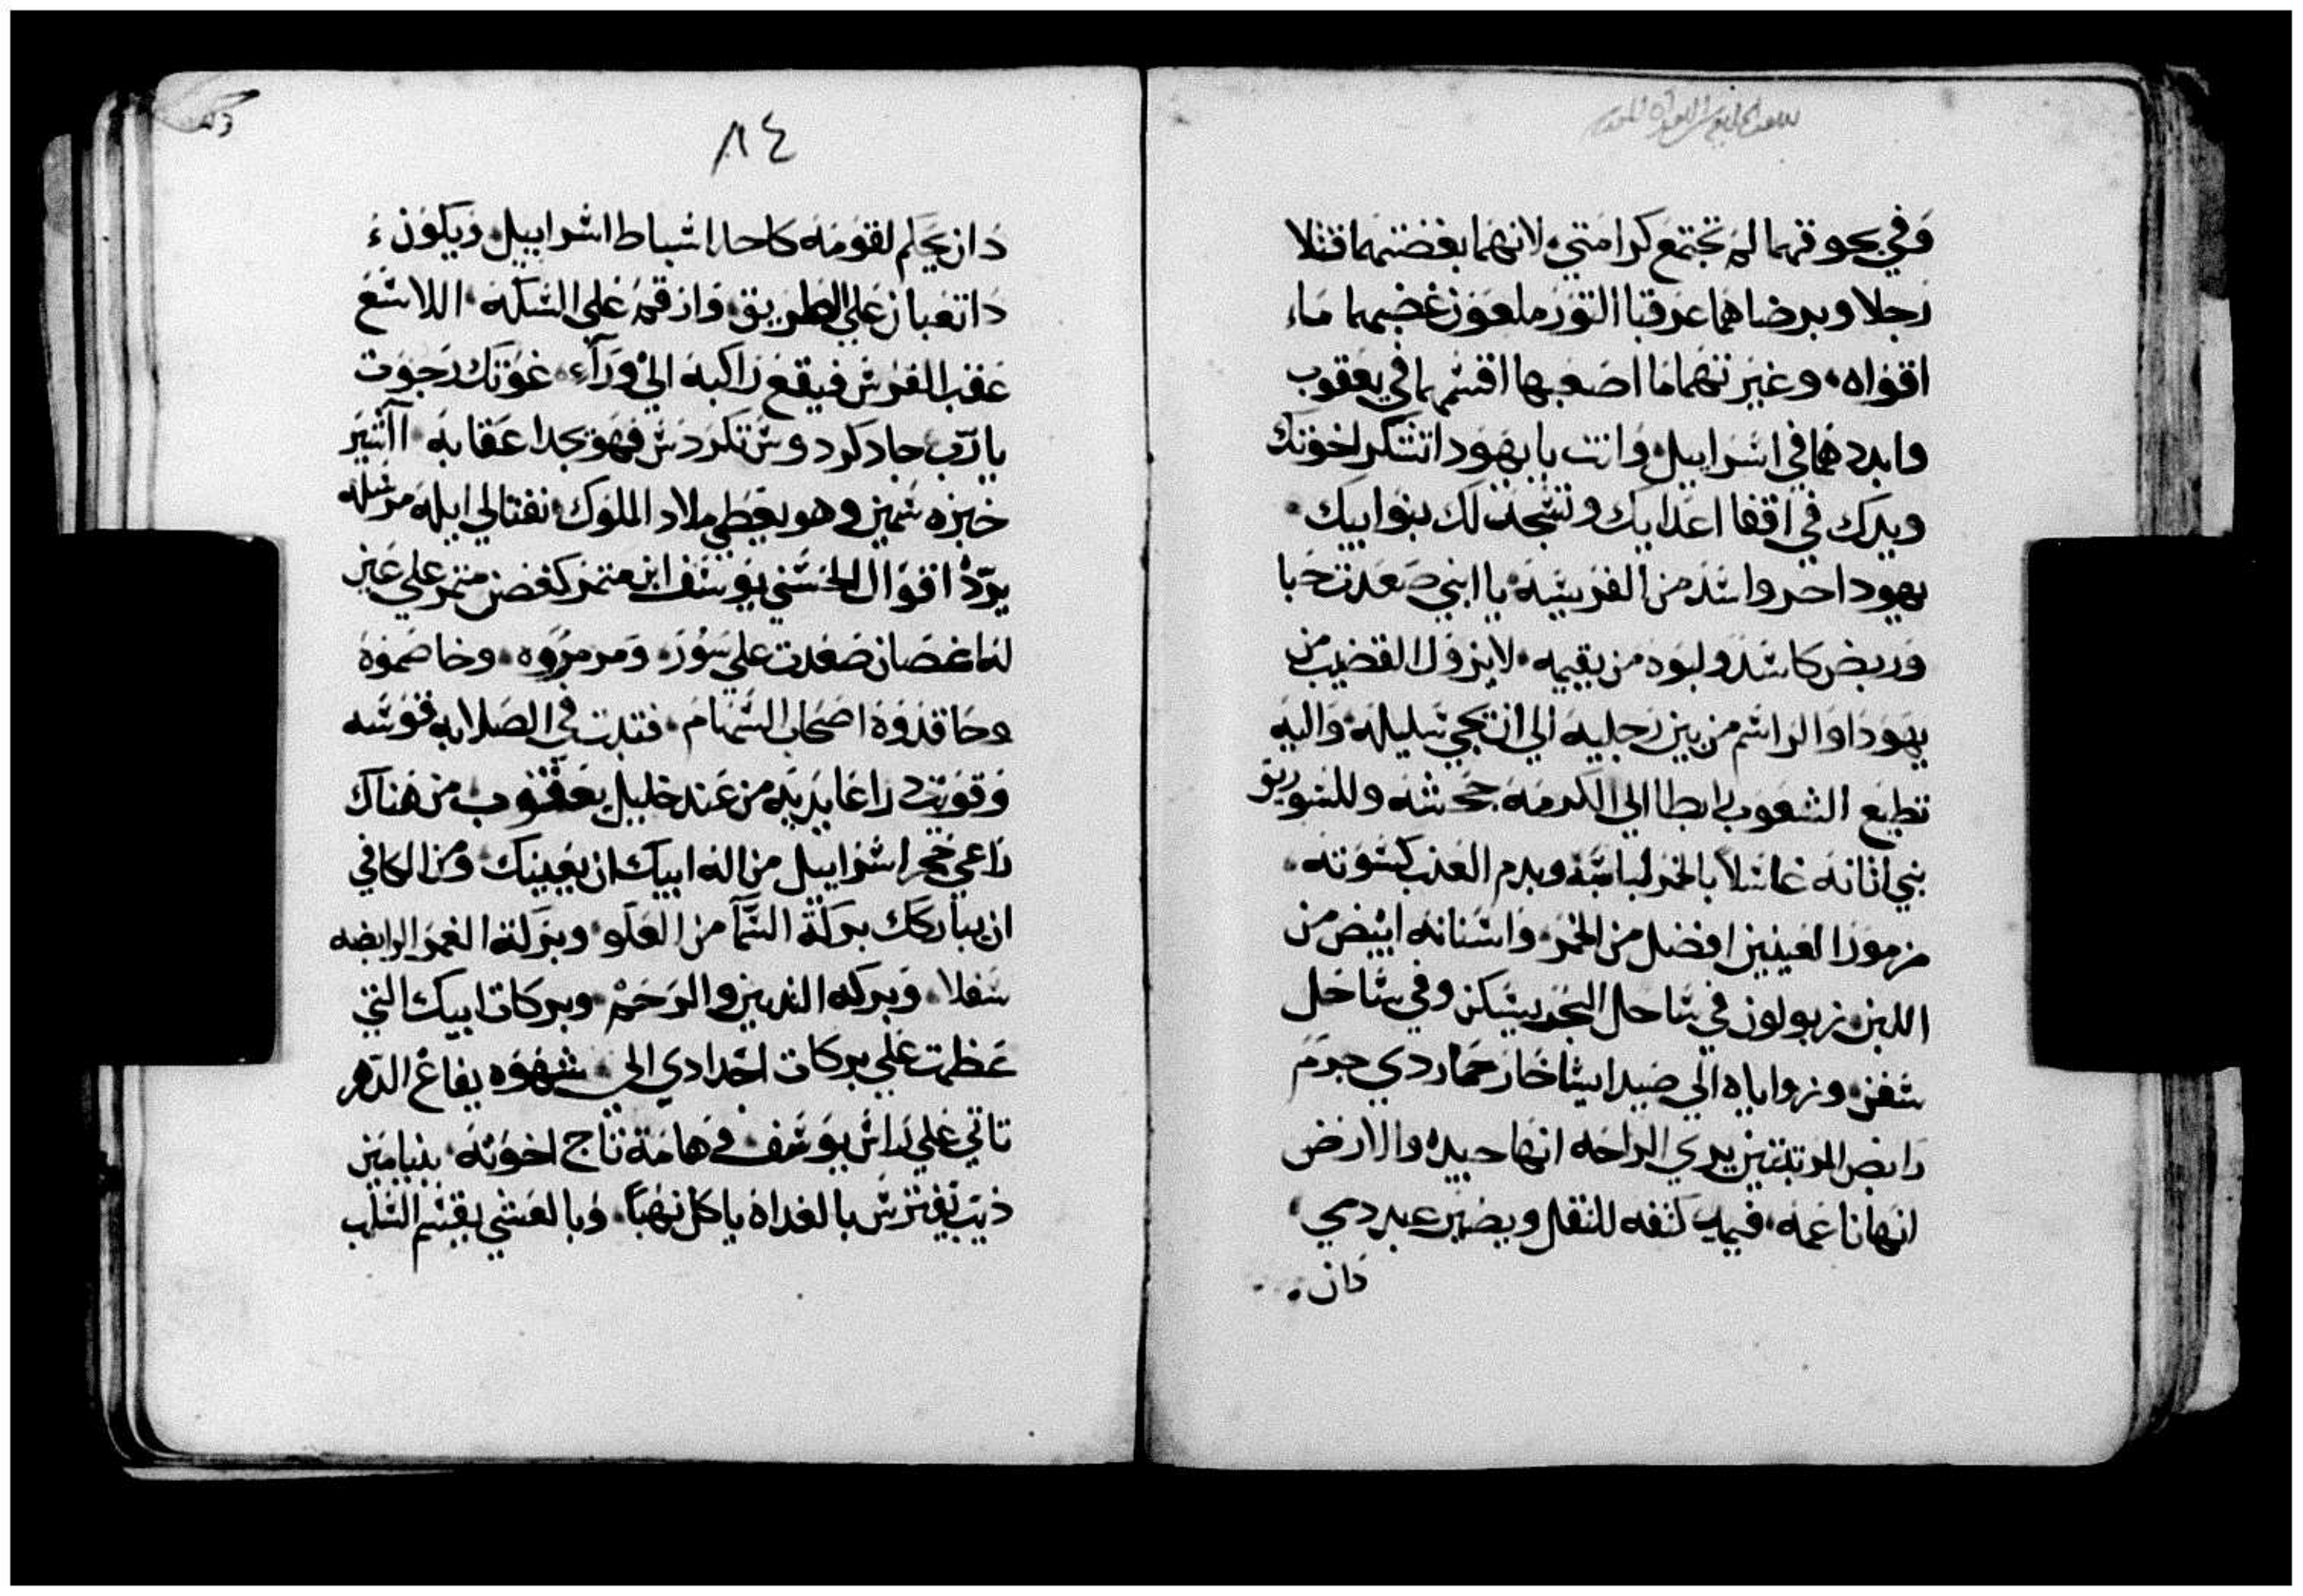 وفي جوقهما لم تجتمع كرامتي لانهما بغضتهما قتلا
رجلا وبرضاهما عرقبا الثور ملعون غضبهما ماء
اقواه وغيرتهما ما اصعبها اقسمهما في يعقوب
وابددهما في اسراييل وانت يا يهودا تشكر اخوتك
ويدك في اقفا اعدايك وتسجد لك بنوا ابيك
يهودا جرو اسد من الفريسه يا ابني صعدت حبا
وربض كاسد ولبوه من يقيمه لا يزول القضيب من
يهودا والراسم من بين رجليه الي ان تجي سليله واليه
تطيع الشعوب رابطا الي الكرمه جحشه وللسوريق
بني اتانه غاسلا بالخمر لباسه وبدم العنب كسوته
مزمورا العينين افضل من الخمر واسنانه ابيض من
اللبن زبولون في ساحل البحر يسكن وفي ساحل
سفن وزواياه الي صيدا ايساخار حمار ذي جرم
رابض المرتبتين يري الراحه انها جيده والارض
انها ناعمه فيميل كتفه للثقل ويصير عبد ذمي
دان
٨٤
دان يحكم لقومه كاحد اسباط اسراييل ويكون
دا ثعبان علي الطريق وارقم علي السكه اللاسع
عقب الفرس فيقع راكبه الي ورآء غوثك رجوت
يا رب جاد كردوس تكردس فهو بجدا عقابه آاشير
خبزه سمين وهو يعطي ملاد الملوك نفتالي ايله مرسله
يرد اقوال الحسني يوسف ابن مثمر كغصن مثمر علي عين
له اغصان صعدت علي سور ومرمروه وخاصموه
وحاقدوه اصحاب السهام فثبتت في الصلابه قوسه
وقويت دراعا يديه من عند خليل يعقوب من هناك
راعي حجر اسراييل من اله ابيك ان يعينك ومن الكافي
ان يباركك بركة السمآ من العلو وبركة الغمر الرابضه
سفلا وبركه الثديين والرحم وبركات ابيك التي
عظمت علي بركات اجدادي الي شهوه يفاع الدهر
تاتي علي راس يوسف وهامة تاج اخوته بنيامين
ذيب يفترس بالغداه ياكل نهبا وبالعشي يقسم السلب